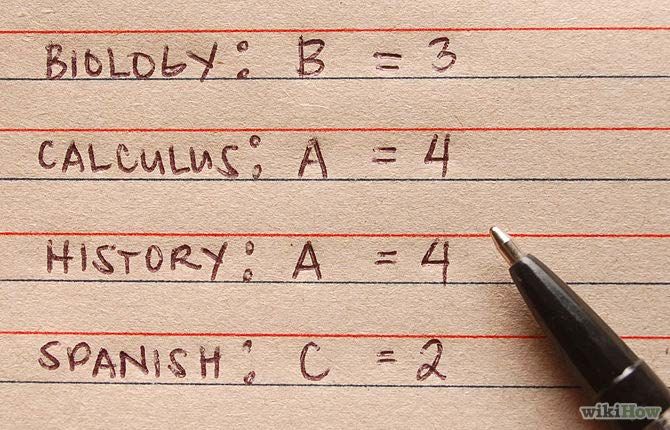 BIOLOGY: B = 3
CALCULUS: A = 4
HISTORY: A = 4
SPANISH: C = 2
wikiHow